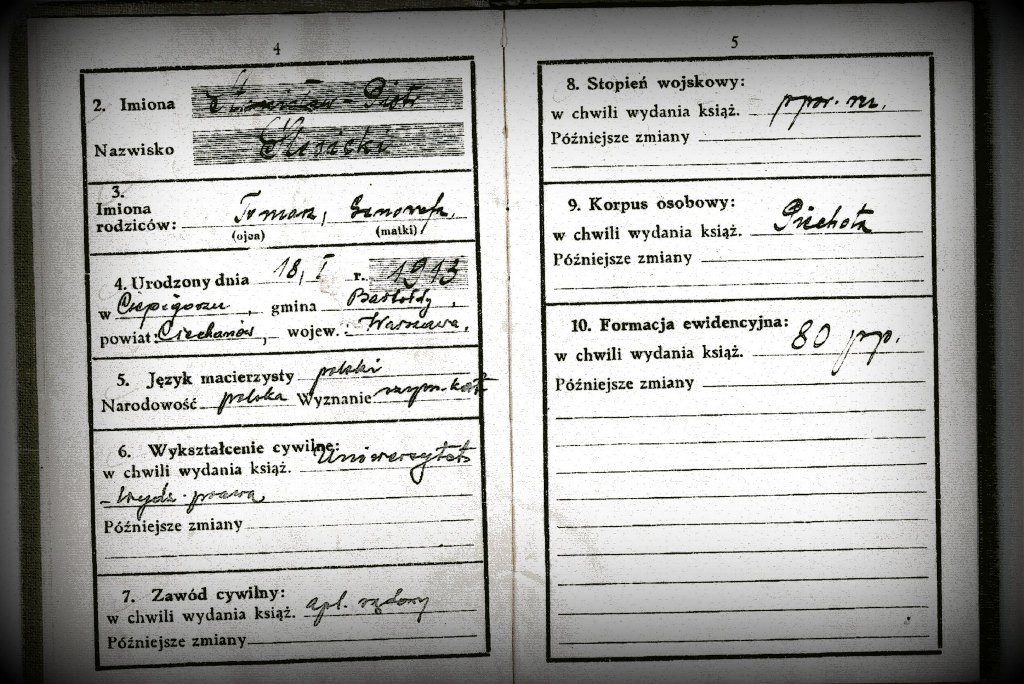 4
2. Imiona Stanisław-Piotr
Nazwisko
3.
Imiona
rodziców: Tomasz, Genowefa,
(ojca) (matki)
4. Urodzony dnia 18, I r. 1913
w gmina Bartołdy,
powiat: Ciechanów, wojew.: Warszawa.
5. Język macierzysty polski
Narodowość polska Wyznanie rzym.-kat
6. Wykształcenie cywilne:
w chwili wydania książ. Uniwersytet
- wydz. prawa
Późniejsze zmiany
7. Zawód cywilny:
w chwili wydania książ. apl. sądowy
Późniejsze zmiany
5
8. Stopień wojskowy:
w chwili wydania książ. ppor. rez.
Późniejsze zmiany
9. Korpus osobowy:
w chwili wydania książ. Piechota
Późniejsze zmiany
10. Formacja ewidencyjna:
w chwili wydania książ. 80 pp.
Późniejsze zmiany